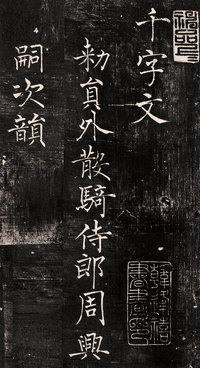 千字文
勑員外散騎侍郎周興
嗣次韻